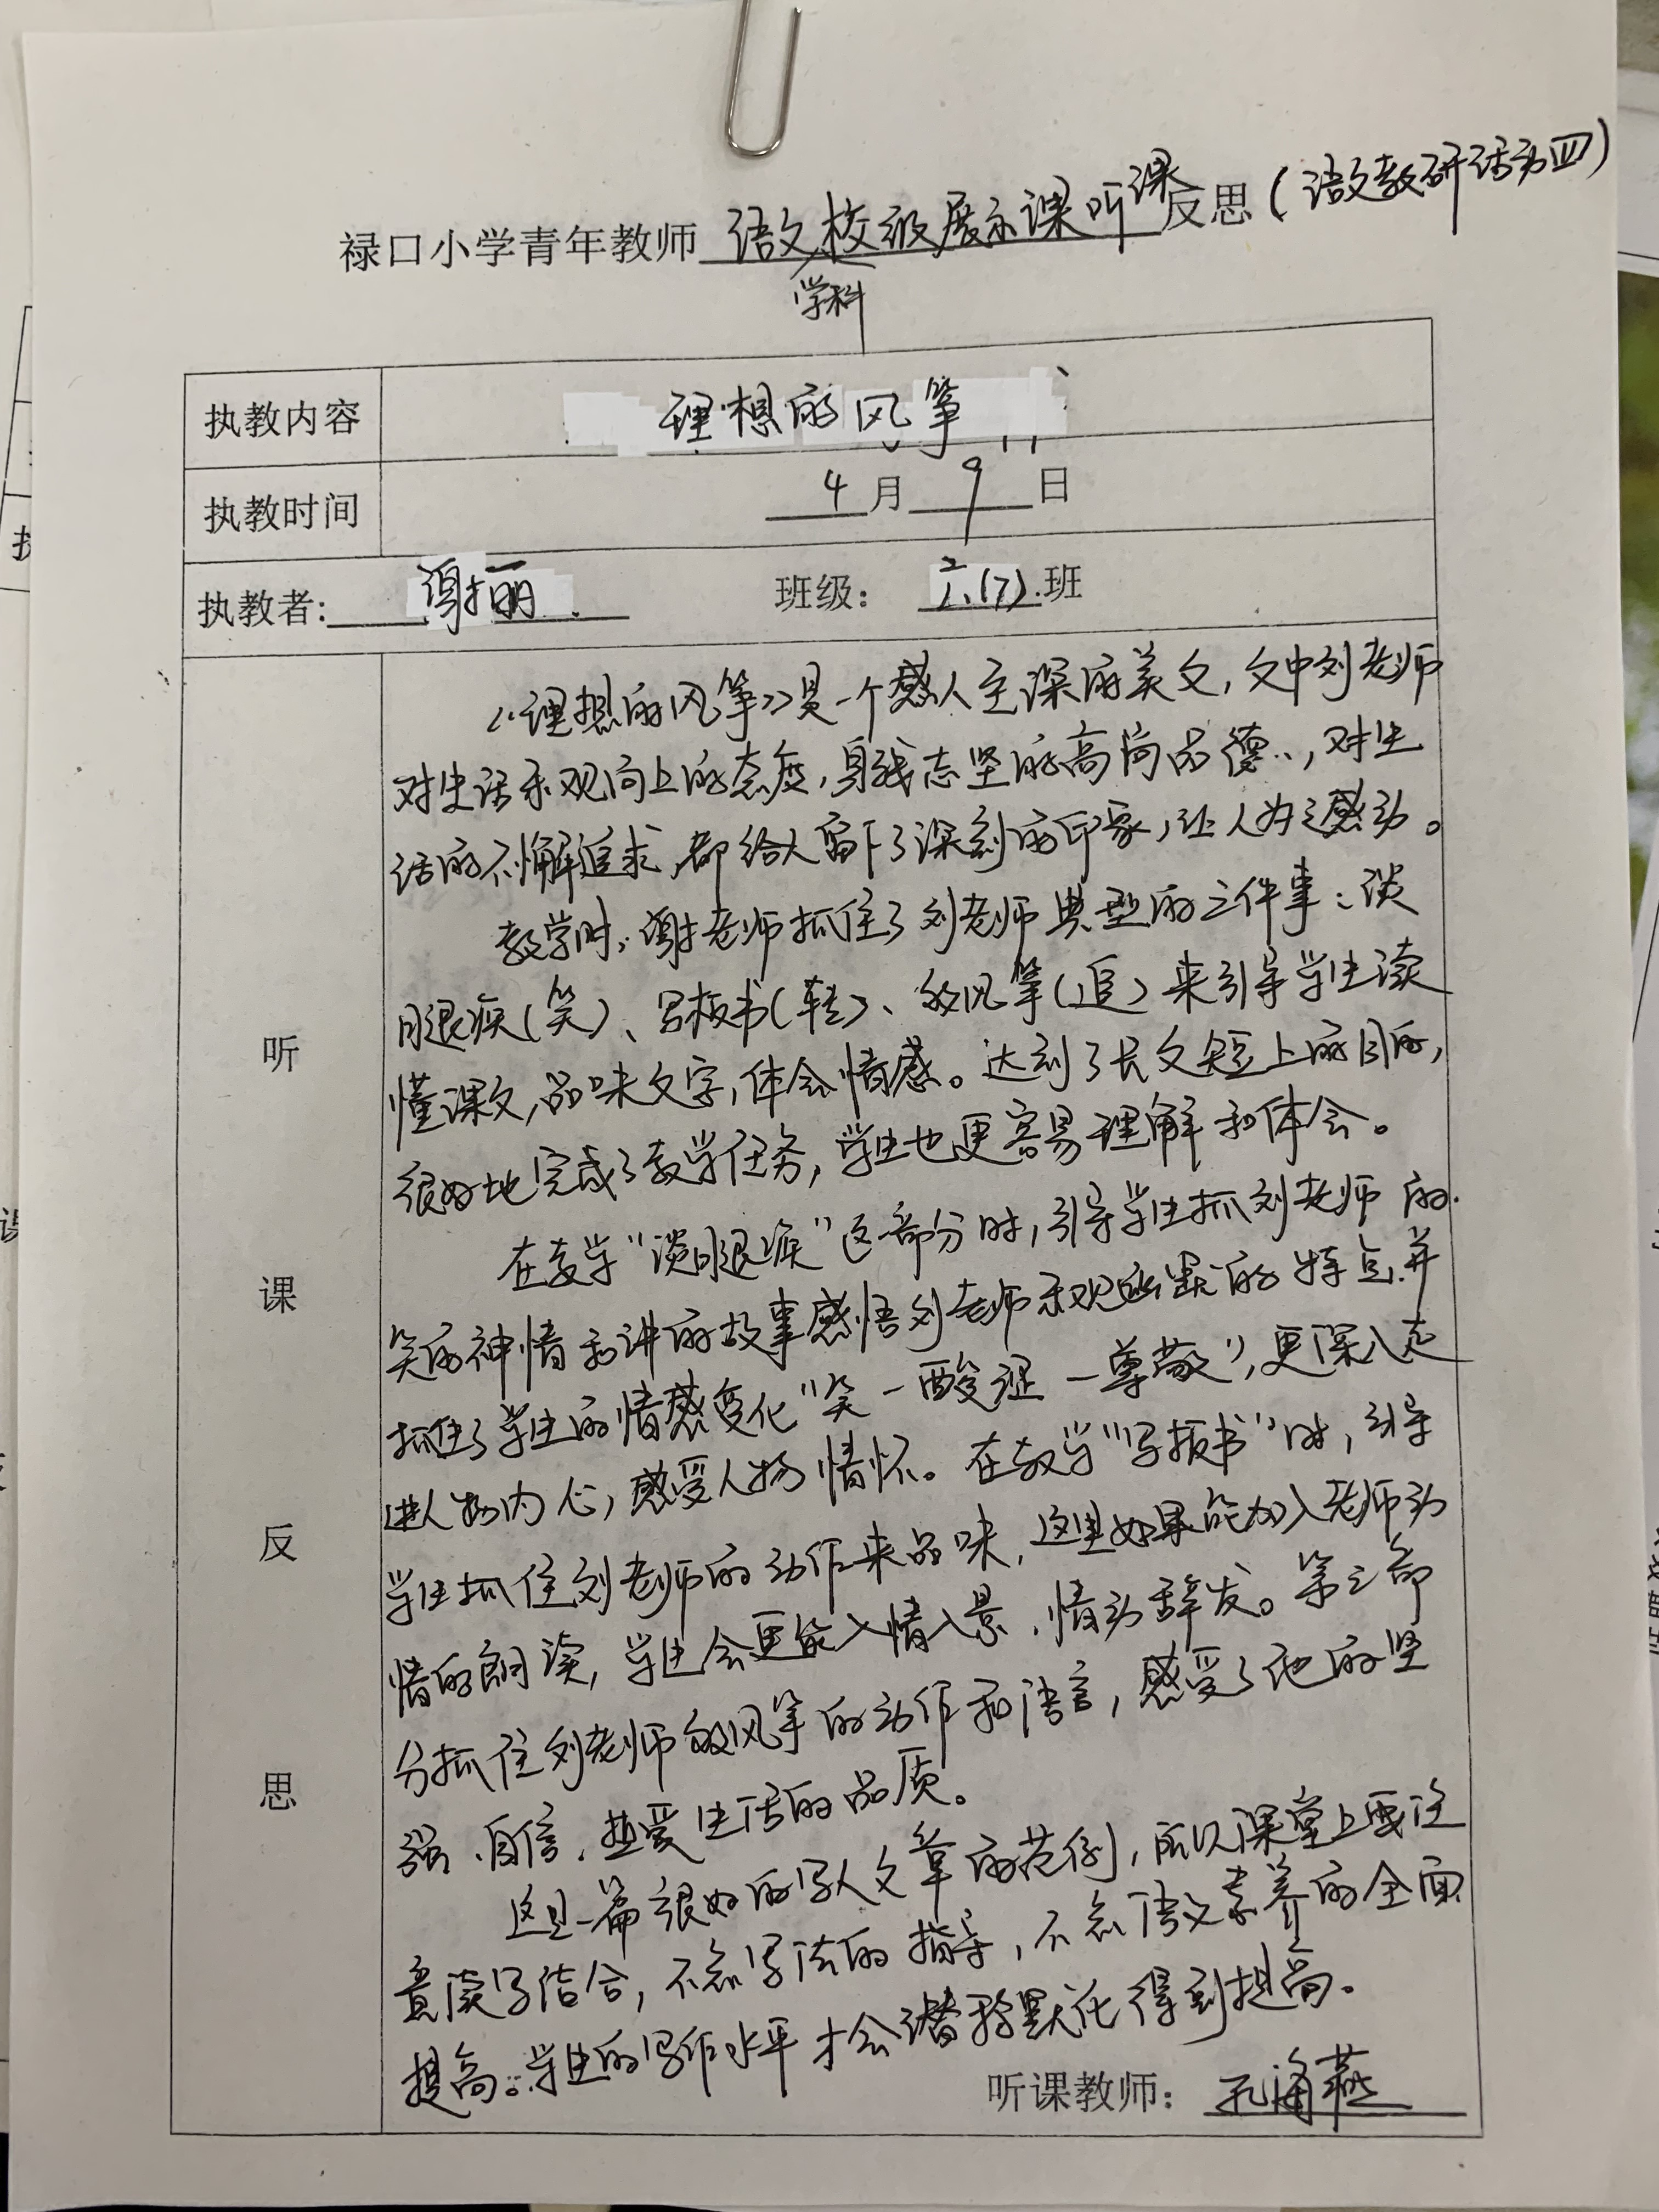 禄口小学青年教师 语文校级展示课听课反思(语文教研活动四)
学科
执教内容 理想的风筝
执教时间 4月9日
执教者: 谢丽 班级: 六(7).班
听课反思
《理想的风筝》是一个感人至深的美文,文中刘老师
对生活乐观向上的态度,身残志坚的高尚品德,对生
活的不懈追求,都给人留下了深刻的印象,让人为之感动。
教学时,谢老师抓住了刘老师典型的三件事:谈
腿疾(笑)、写板书(转)、放风筝(追)来引导学生读
懂课文,品味文字,体会情感。达到了长文短上的目的,
很好地完成了教学任务,学生也更容易理解和体会。
在教学“谈腿疾”这部分时,引导学生抓刘老师的
笑的神情和讲的故事感悟刘老师乐观幽默的特点,并
抓住了学生的情感变化“笑—酸涩—尊敬”,更深入走
进人物内心,感受人物情怀。在教学“写板书”时,引导
学生抓住刘老师的动作来品味,这里如果能加入老师动
情的朗读,学生会更能入情入景,情动辞发。第三部
分抓住刘老师放风筝的动作和语言,感受了他的坚
强、自信、热爱生活的品质。
这是一篇很好的写人文章的范例,所以课堂上要注
意读写结合,不忘写法的指导,不忘语文素养的全面
提高。学生的写作水平才会潜移默化得到提高。
听课教师: 孔海燕